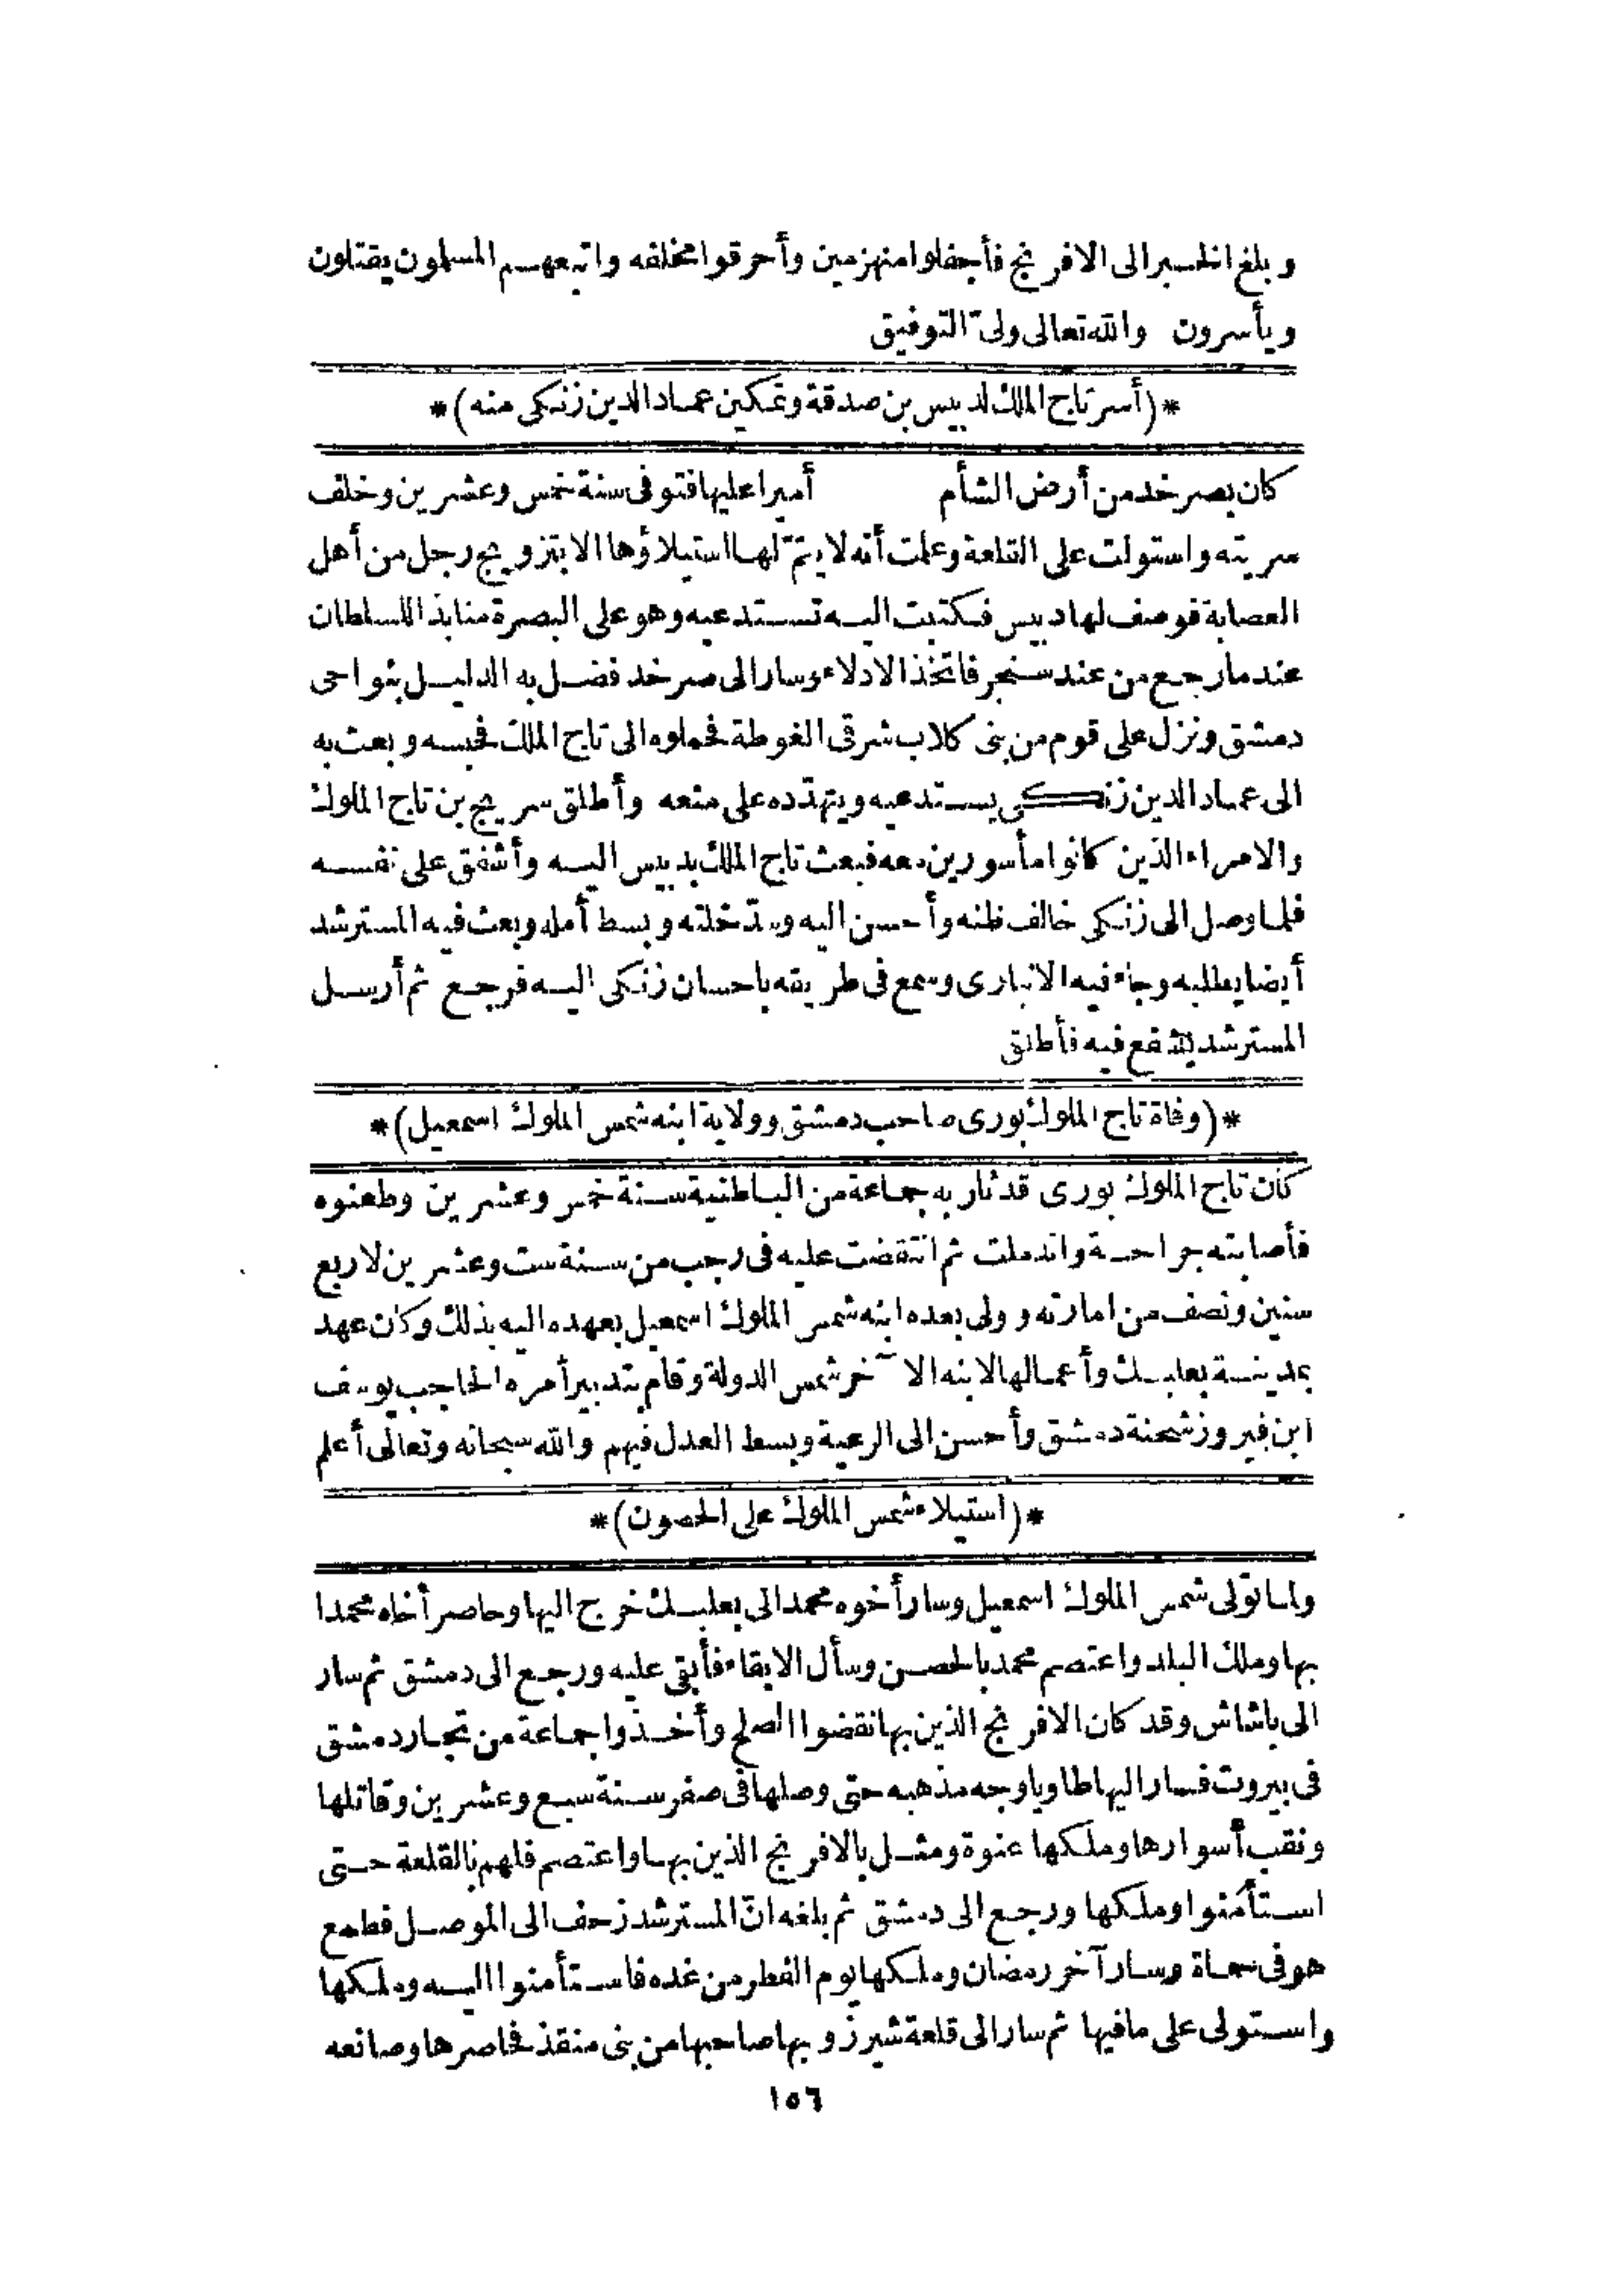 وبلغ الخبر الى الافرنج فأجفلوا منهزمين وأحرقوا مخلفه واتبعهم المسلمون يقتلون
ويأسرون والله تعالى ولىّ التوفيق
*(أسر تاج الملك لدبيس بن صدقة وتمكين عماد الدين زنكى منه)*
كان بصرخد من أرض الشأم أميرا عليها فتوفى سنة خمس وعشرين وخلف
سريته واستولت على القلعة وعلمت أنه لا يتمّ لها استيلاؤها الا بتزويج رجل من أهل
العصابة فوصف لها دبيس فكتبت اليه تستدعيه وهو على البصرة منابذا للسلطان
عندما رجع من عند سنجر فاتخذ الادلاء وسار الى صرخد فضل به الدليل بنواحى
دمشق ونزل على قوم من بنى كلاب شرقى الغوطة فحملوه الى تاج الملك فحبسه وبعث به
الى عماد الدين زنكى يستدعيه ويتهدّده على منعه وأطلق سريج بن تاج الملوك
والامراء الذين كانوا مأسورين معه فبعث تاج الملك بدبيس اليه وأشفق على نفسه
فلما وصل الى زنكى خالف ظنه وأحسن اليه وسدّ خلته وبسط أمله وبعث فيه المسترشد
أيضا يطلبه وجاء فيه الانبارى وسمع فى طريقه باحسان زنكى اليه فرجع ثم أرسل
المسترشد يشفع فيه فأطلق
*(وفاة تاج الملوك بورى صاحب دمشق وولاية ابنه شمس الملوك اسمعيل)*
كان تاج الملوك بورى قد ثار به جماعة من الباطنية سنة خمس وعشرين وطعنوه
فأصابته جراحة واندملت ثم انتقضت عليه فى رجب من سنة ست وعشرين لاربع
سنين ونصف من امارته وولى بعده ابنه شمس الملوك اسمعيل بعهده اليه بذلك وكان عهد
بمدينة بعلبك وأعمالها لابنه الآخر شمس الدولة وقام بتدبير أمره الحاجب يوسف
ابن فيروز شحنة دمشق وأحسن الى الرعية وبسط العدل فيهم والله سبحانه وتعالى أعلم
*(استيلاء شمس الملوك على الحصون)*
ولما تولى شمس الملوك اسمعيل وسار أخوه محمد الى بعلبك خرج اليها وحاصر أخاه محمدا
بها وملك البلد واعتصم محمد بالحصن وسأل الابقاء فأبقى عليه ورجع الى دمشق ثم سار
الى باشاش وقد كان الافرنج الذين بها نقضوا الصلح وأخذوا جماعة من تجار دمشق
فى بيروت فسار اليها طاويا وجه مذهبه حتى وصلها فى صفر سنة سبع وعشرين وقاتلها
ونقب أسوارها وملكها عنوة ومثل بالافرنج الذين بها واعتصم فلهم بالقلعة حتى
استأمنوا وملكها ورجع الى دمشق ثم بلغه انّ المسترشد زحف الى الموصل فطمع
هو فى حماة وسار آخر رمضان وملكها يوم الفطر من غده فاستأمنوا اليه وملكها
واستولى على ما فيها ثم سار الى قلعة شيرز وبها صاحبها من بنى منقذ فحاصرها وصانعه
١٥٦